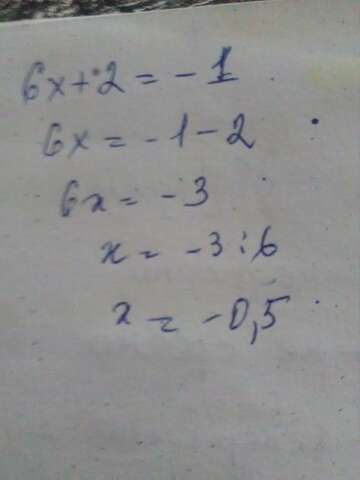 6x+2 = -1
6x = -1-2
6x = -3
x = -3:6
x = -0,5